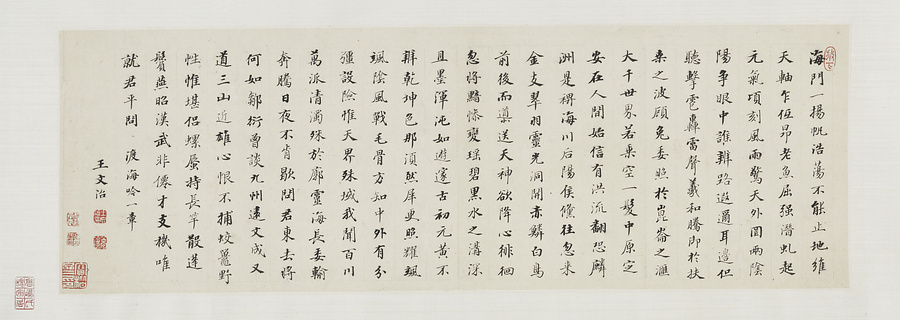 海門一揚帆浩蕩不能止地維
天軸乍低昂老魚屈强潛虬起
元氣頃刻風雨驚天外罔兩陰
陽爭眼中誰辨路遐邇耳邊但
聽擊雹轟雷聲羲和騰即於扶
桑之波顧兔委照於崑崙之滙
大千世界若棗空一髮中原定
安在人間始信有洪流翻恐麟
洲是稗海川后陽侯倏往忽來
金支翠羽靈光洞開赤鱗白鳥
前後而導送天神欲降心徘徊
忽將黯慘變瑶碧黑水之溝深
且墨渾沌如遊邃古初元黃不
辨乾坤色那須然犀更照耀颯
颯陰風戰毛骨方知中外有分
疆設險惟天界殊域我聞百川
萬派清濁殊於廓靈海長委輸
奔騰日夜不肯歇問君東去將
何如鄒衍曾談九州遠文成又
道三山近雄心恨不捕蛟鼉野
性惟堪侶螺蜃持長竿散蓬
鬢燕昭漢武非僊才支機唯
就君平問 渡海吟一章
王文治